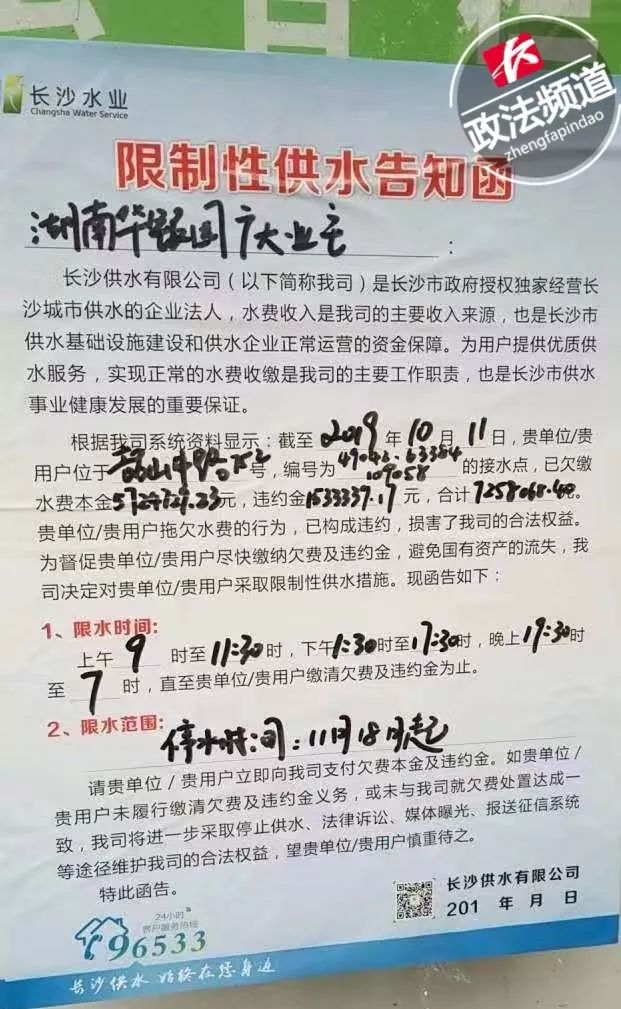 政法频道
zhengfapindao
长沙水业
Changsha Water Service
限制性供水告知函
湖南华银园广大业主:
长沙供水有限公司(以下简称我司)是长沙市政府授权独家经营长
沙城市供水的企业法人,水费收入是我司的主要收入来源,也是长沙市
供水基础设施建设和供水企业正常运营的资金保障。为用户提供优质供
水服务,实现正常的水费收缴是我司的主要工作职责,也是长沙市供水
事业健康发展的重要保证。
根据我司系统资料显示:截至2019年10月11日,贵单位/贵
用户位于韶山中路 号,编号为49042.63384 109058的接水点,已欠缴
水费本金5724729.23元,违约金1533337.17元,合计7258068.40元。
贵单位/贵用户拖欠水费的行为,已构成违约,损害了我司的合法权益。
为督促贵单位/贵用户尽快缴纳欠费及违约金,避免国有资产的流失,我
司决定对贵单位/贵用户采取限制性供水措施。现函告如下:
1、限水时间:
上午9时至11:30时,下午1:30时至17:30时,晚上19:30时
至7时,直至贵单位/贵用户缴清欠费及违约金为止。
2、限水范围:
停水时间:11月18日起
请贵单位/贵用户立即向我司支付欠费本金及违约金。如贵单位/
贵用户未履行缴清欠费及违约金义务,或未与我司就欠费处置达成一
致,我司将进一步采取停止供水、法律诉讼、媒体曝光、报送征信系统
等途径维护我司的合法权益,望贵单位/贵用户慎重待之。
特此函告。
长沙供水有限公司
201 年 月 日
24小时
客户服务热线
96533
长沙供水 始终在您身边